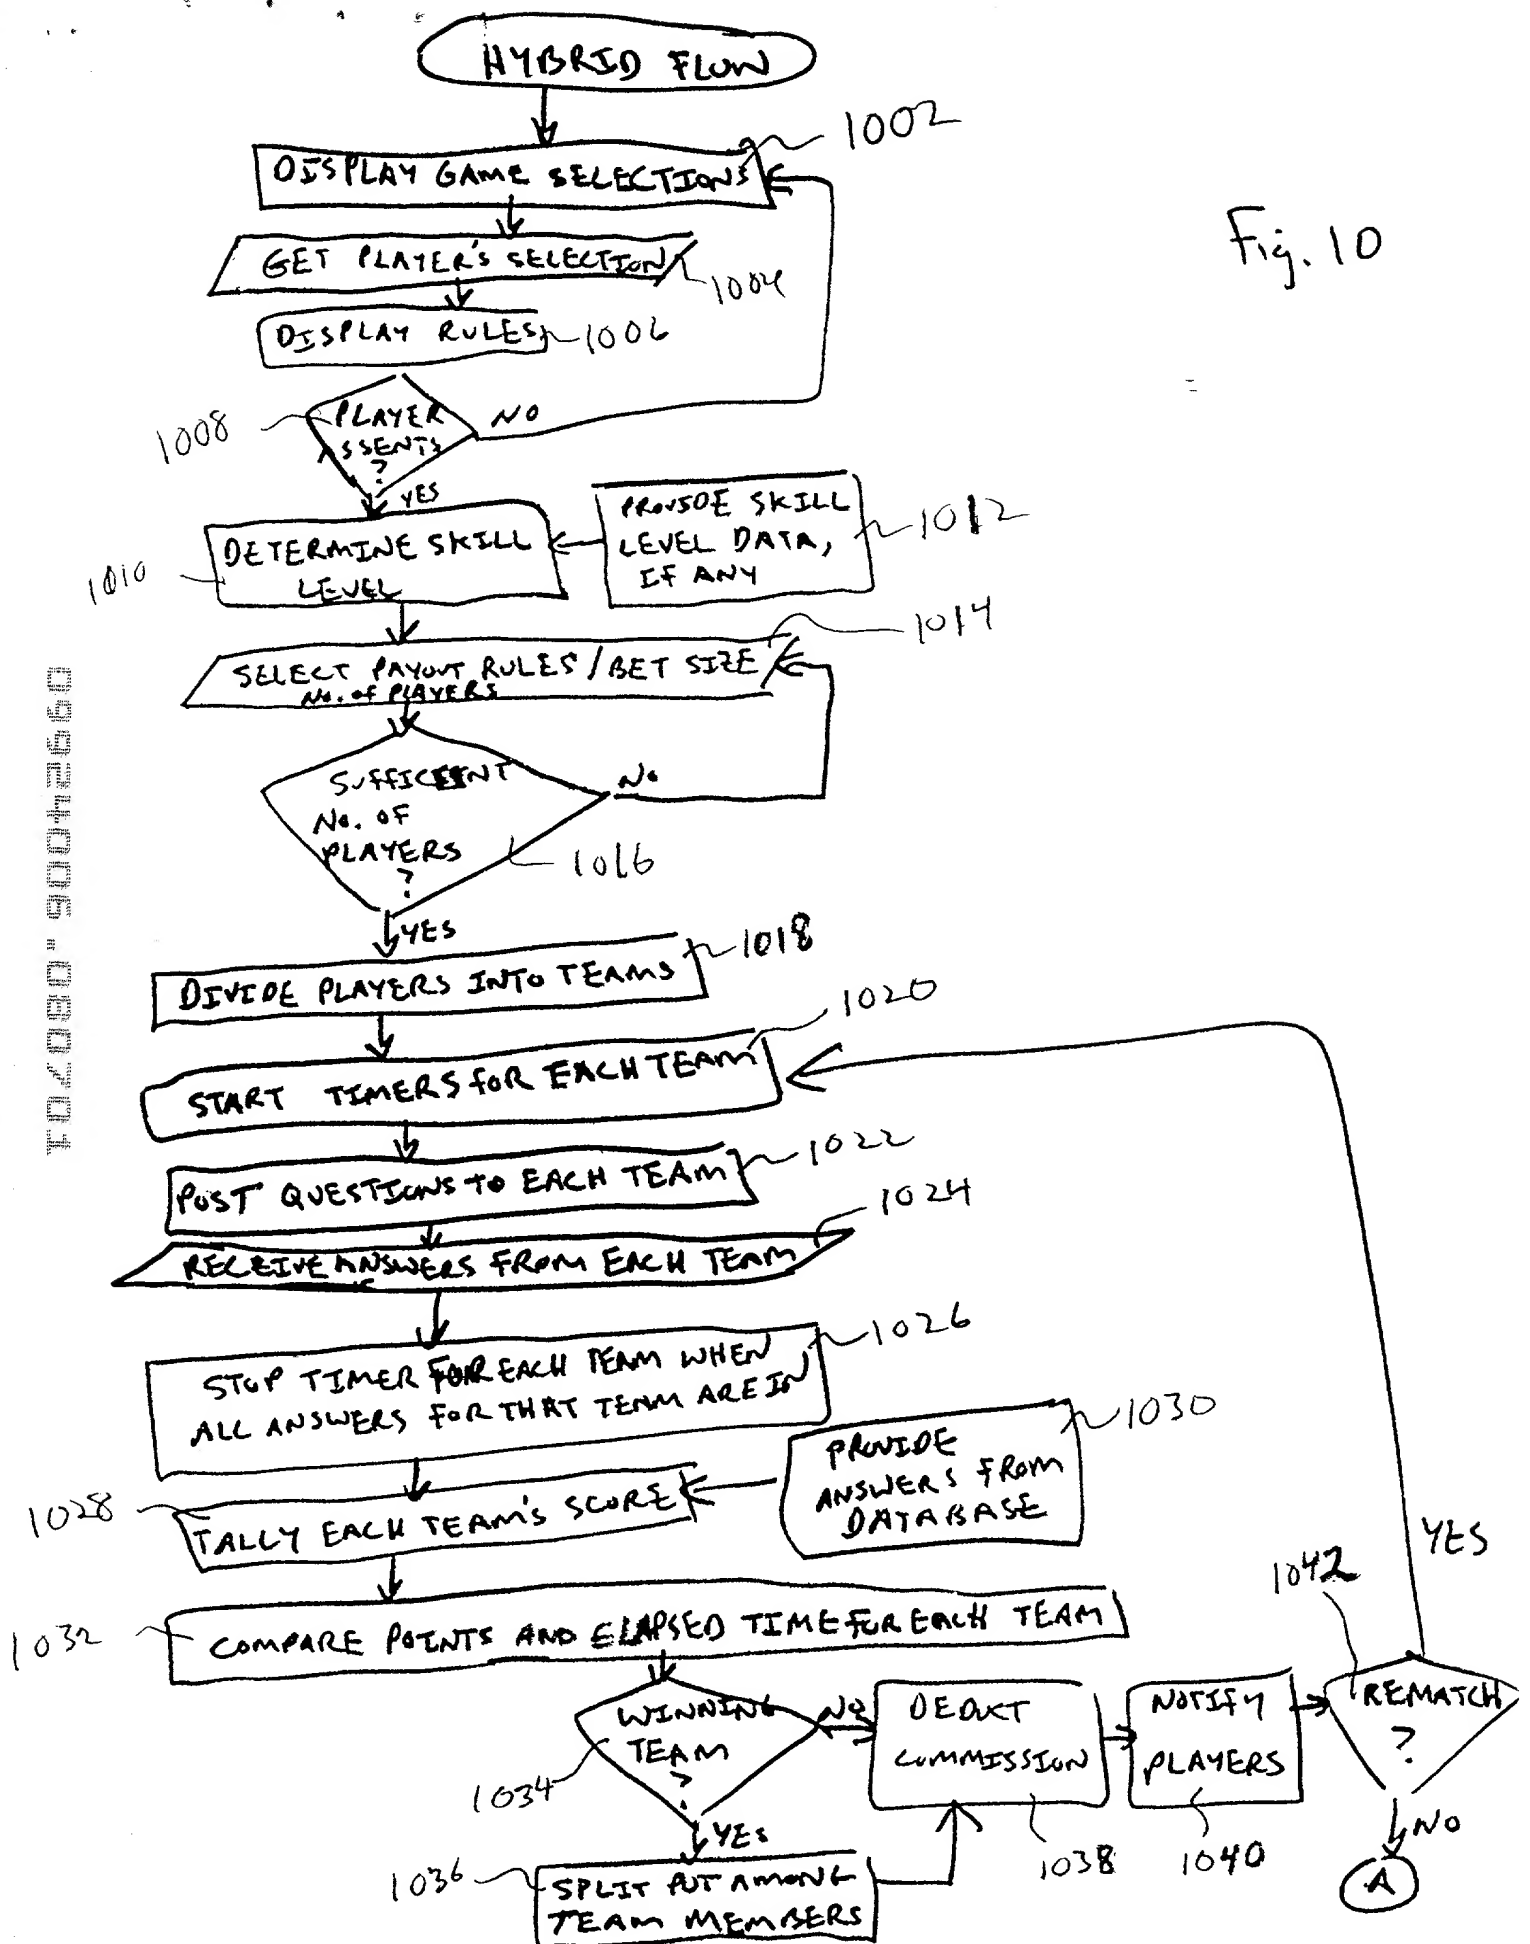 HYBRID FLOW
1002
DISPLAY GAME SELECTIONS
Fig. 10
GET PLAYER'S SELECTION
1004
DISPLAY RULES
1006
1008
PLAYER
ASSENTS
?
NO
YES
PROVIDE SKILL
LEVEL DATA,
IF ANY
1012
DETERMINE SKILL
LEVEL
1010
1014
SELECT PAYOUT RULES / BET SIZE
No. of PLAYERS
SUFFICIENT
No. OF
PLAYERS
?
No
1016
YES
1018
DIVIDE PLAYERS INTO TEAMS
1020
START TIMERS FOR EACH TEAM
1022
POST QUESTIONS TO EACH TEAM
1024
RECEIVE ANSWERS FROM EACH TEAM
1026
STOP TIMER FOR EACH TEAM WHEN
ALL ANSWERS FOR THAT TEAM ARE IN
1030
PROVIDE
ANSWERS FROM
DATABASE
1028
TALLY EACH TEAM'S SCORE
YES
1042
1032
COMPARE POINTS AND ELAPSED TIME FOR EACH TEAM
WINNING
TEAM
?
NO
1034
DEDUCT
COMMISSION
1038
NOTIFY
PLAYERS
1040
REMATCH
?
NO
A
YES
1036
SPLIT POT AMONG
TEAM MEMBERS
09924006.080701